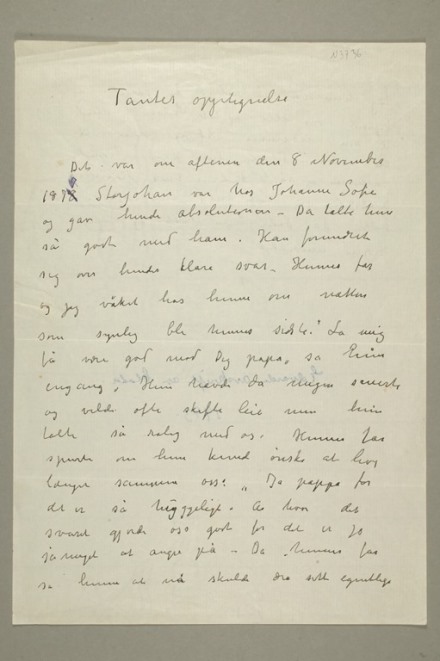 N3736
Tantes optegnelse
Det var om aftenen den 8 November
187 Storjohan var hos Johanne Sofie
og gav hende absolutionen – Da talte hun
så godt med ham. Han forundret
sig over hendes klare svar – Hennes far
og jeg våket hos henne om natten
som synlig ble hennes sidste. La mig
få være god med Dig papa, sa
engang, Hun havde da megen smerte
og vilde ofte skifte leie men hun
talte så rolig med os. Hennes far
spurte om hun kunde ønske at leve
længer sammen oss? "Ja pappa for
det er så hyggeligt. Ac hvor det
svaret gjorde oss godt for det er jo
så meget at angre på – Da hennes far
sa henne at nå skulde dra sitt egentlige